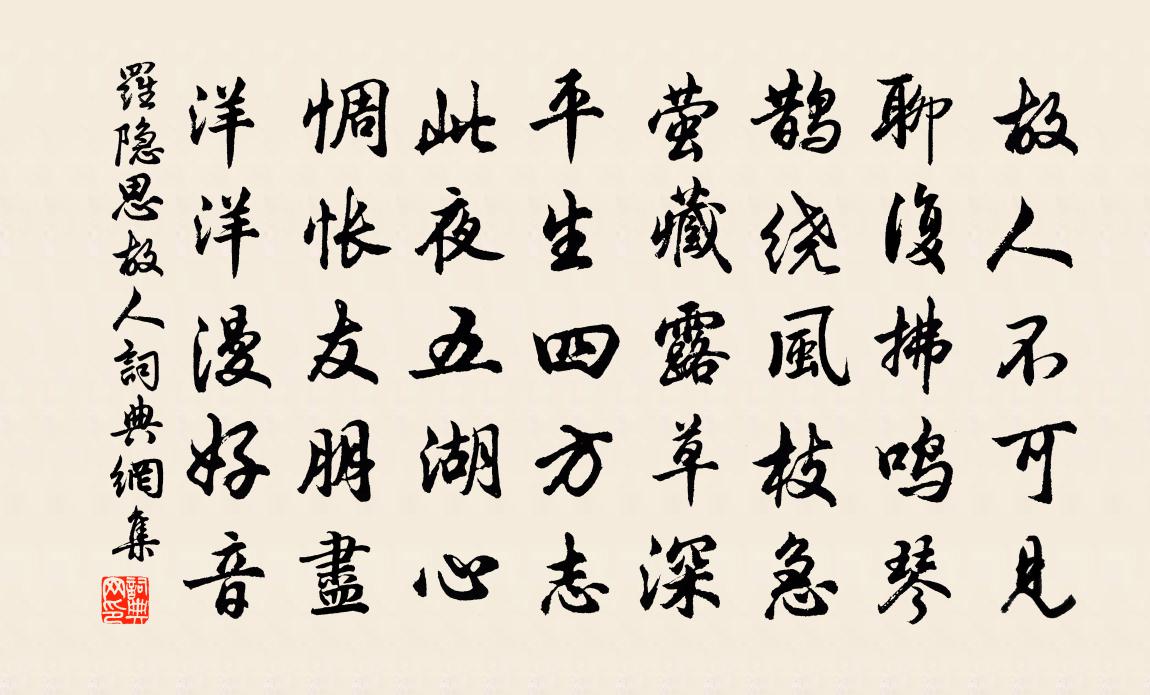 故人不可見
聊復拂鸣琴
鹊绕風枝急
萤藏露草深
平生四方志
此夜五湖心
惆怅友朋盡
洋洋漫好音
羅隐思故人詞典網集
詞典网印